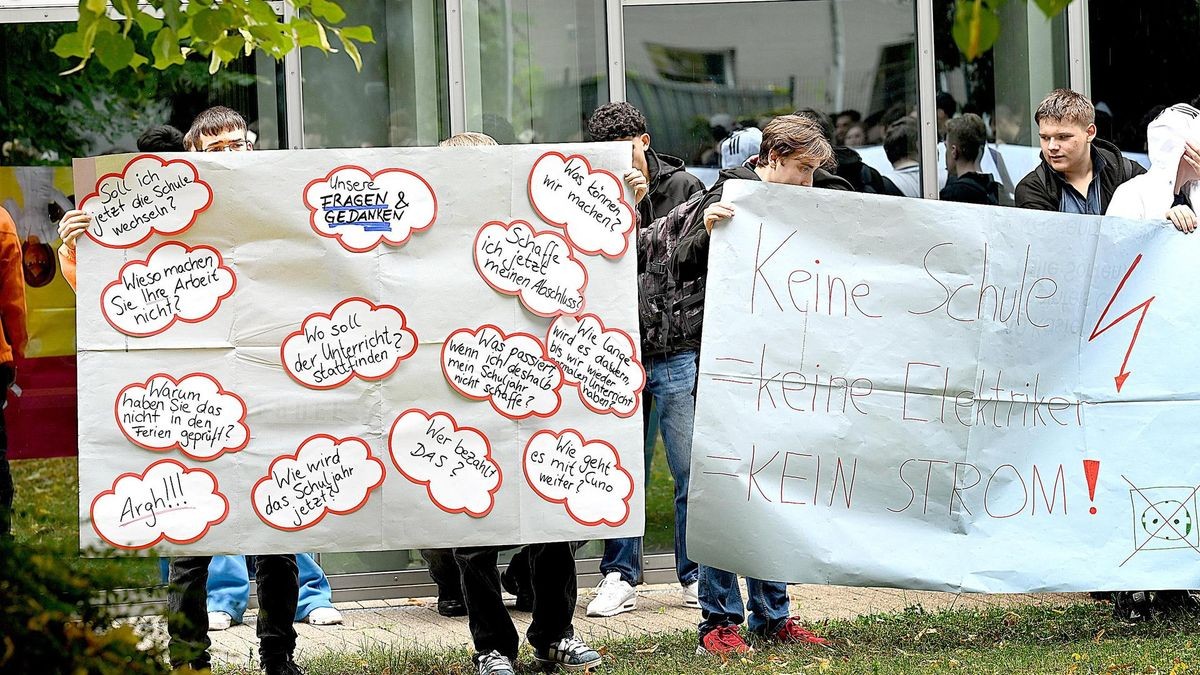 Soll ich
jetzt die Schule
wechseln?
Unsere
FRAGEN &
GEDANKEN
Was können
wir machen?
Wieso machen
Sie Ihre Arbeit
nicht?
Schaffe
ich jetzt
meinen Abschluss?
Wo soll
der Unterricht
stattfinden?
Was passiert,
wenn ich deshalb
mein Schuljahr
nicht schaffe?
Wie lange
wird es dauern,
bis wir wieder
normalen Unterricht
haben?
Warum
haben Sie das
nicht in den
Ferien geprüft?
Wer bezahlt
DAS?
Argh!!!
Wie wird
das Schuljahr
jetzt?
Wie geht
es mit Cuno
weiter?
Keine Schule
=keine Elektriker
=KEIN STROM!